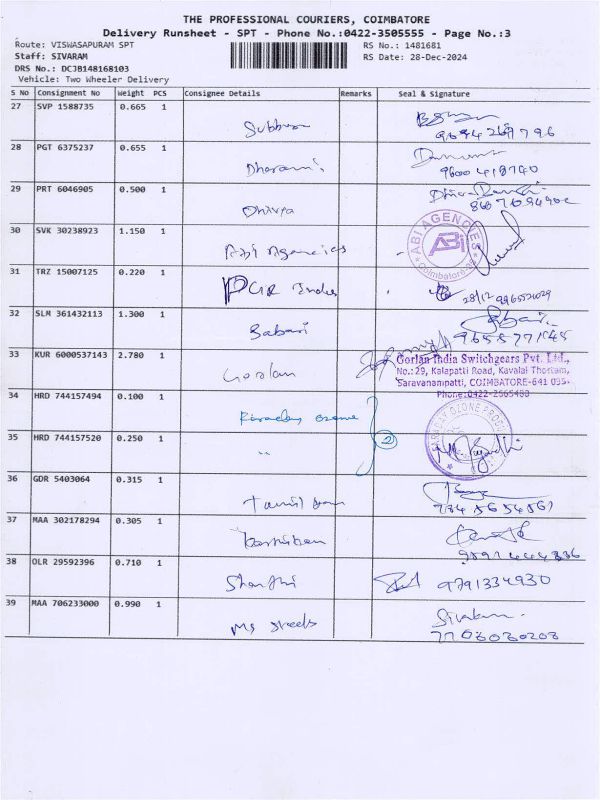 THE PROFESSIONAL COURIERS, COIMBATORE
Delivery Runsheet - SPT - Phone No.:0422-3505555 - Page No.:3
Route: VISWASAPURAM SPT RS No.: 1481681
Staff: SIVARAM RS Date: 28-Dec-2024
DRS No.: DCJB148168103
Vehicle: Two Wheeler Delivery
S No Consignment No Weight PCS Consignee Details Remarks Seal & Signature
27 SVP 1588735 0.665 1
28 PGT 6375237 0.655 1
Dharani
29 PRT 6046905 0.500 1
Dhivya
30 SVK 30238923 1.150 1
Abi Agencies
ABI AGENCIES
ABi
Coimbatore
31 TRZ 15007125 0.220 1
28/12
32 SLM 361432113 1.300 1
Babari
33 KUR 6000537143 2.780 1
Gorlan
Gorlan India Switchgears Pvt. Ltd.,
No.:29, Kalapatti Road, Kavalai Thottam,
Saravanampatti, COIMBATORE-641 035.
Phone:0422-2665480
34 HRD 744157494 0.100 1
Faraday ozone
2
FARADAY OZONE PRODU
35 HRD 744157520 0.250 1
"
36 GDR 5403064 0.315 1
37 MAA 302178294 0.305 1
38 OLR 29592396 0.710 1
Shanthi 9791334930
39 MAA 706233000 0.990 1
Ms steels